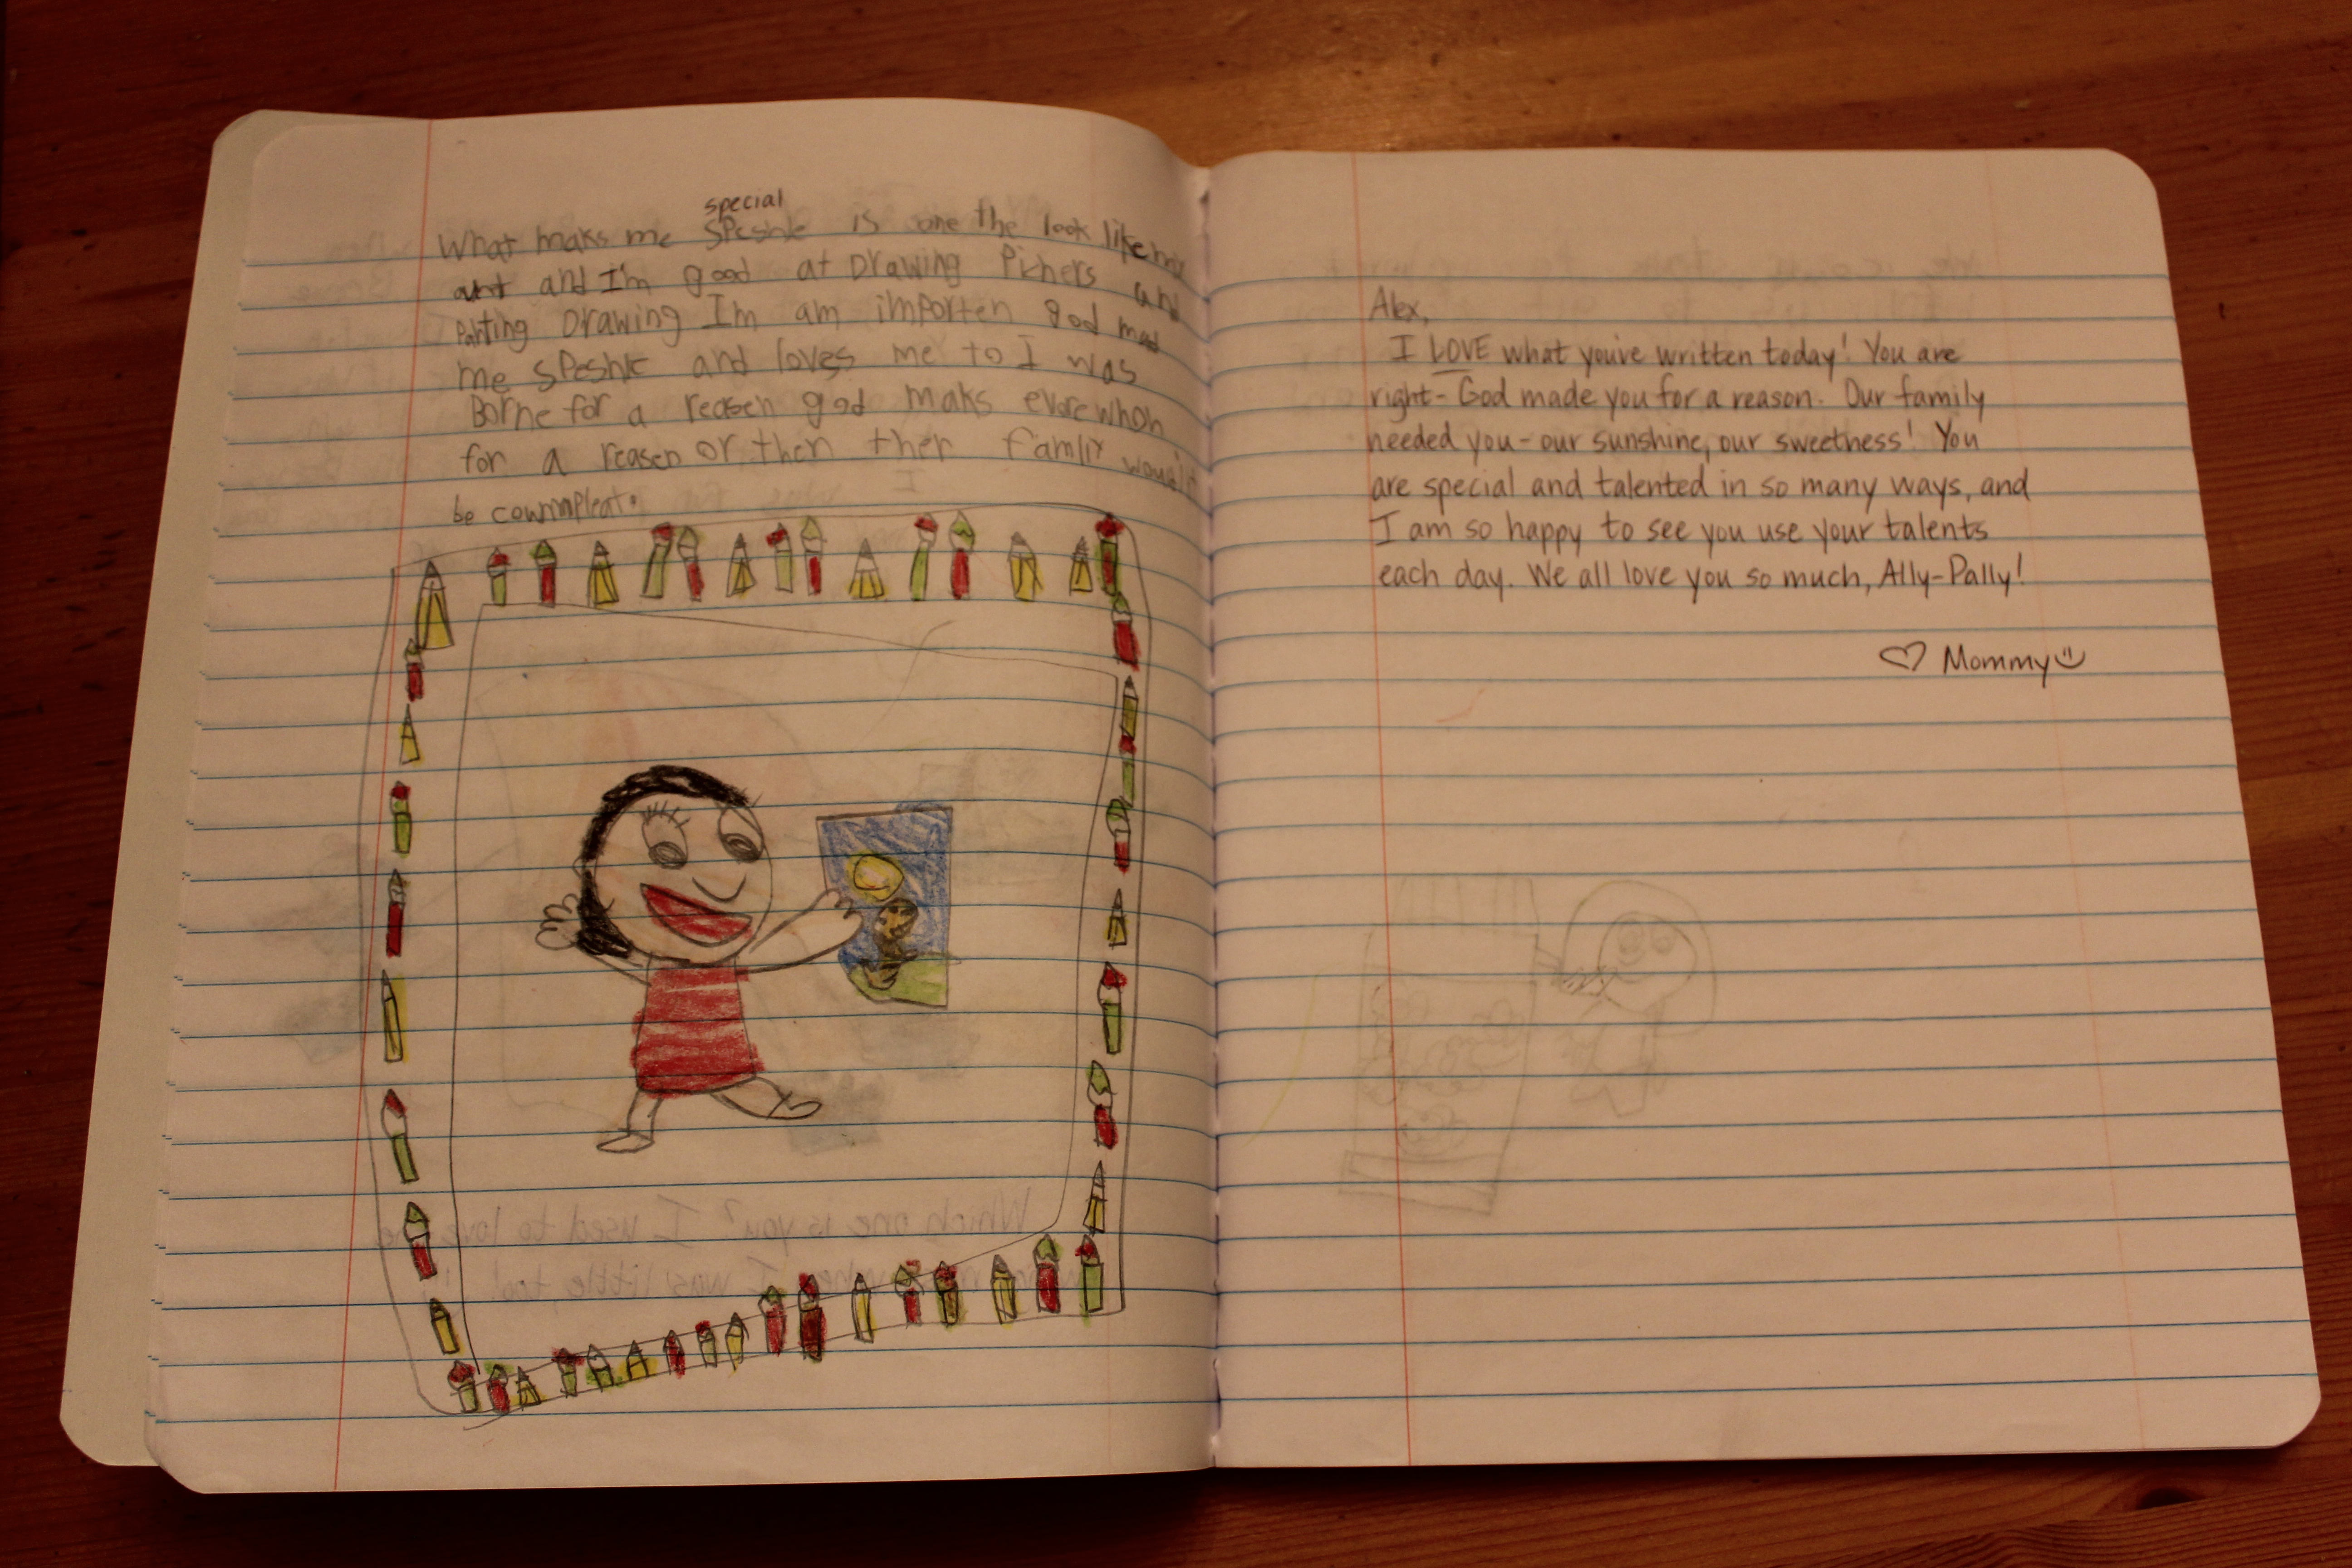 special
What maks me SPeshle is one the look like my
ant and I'm good at Drawing Pichers and
Panting Drawing I'm am importen god mad
me SPeshle and loves me to I was
Borne for a reasen god maks evore whon
for a reasen or then ther Famliy woud'nt
be cowmpleat.
Which one is you? I used to love
when I was little, too!
Alex,
I LOVE what you've written today! You are
right- God made you for a reason. Our family
needed you - our sunshine, our sweetness! You
are special and talented in so many ways, and
I am so happy to see you use your talents
each day. We all love you so much, Ally-Pally!
♡ Mommy